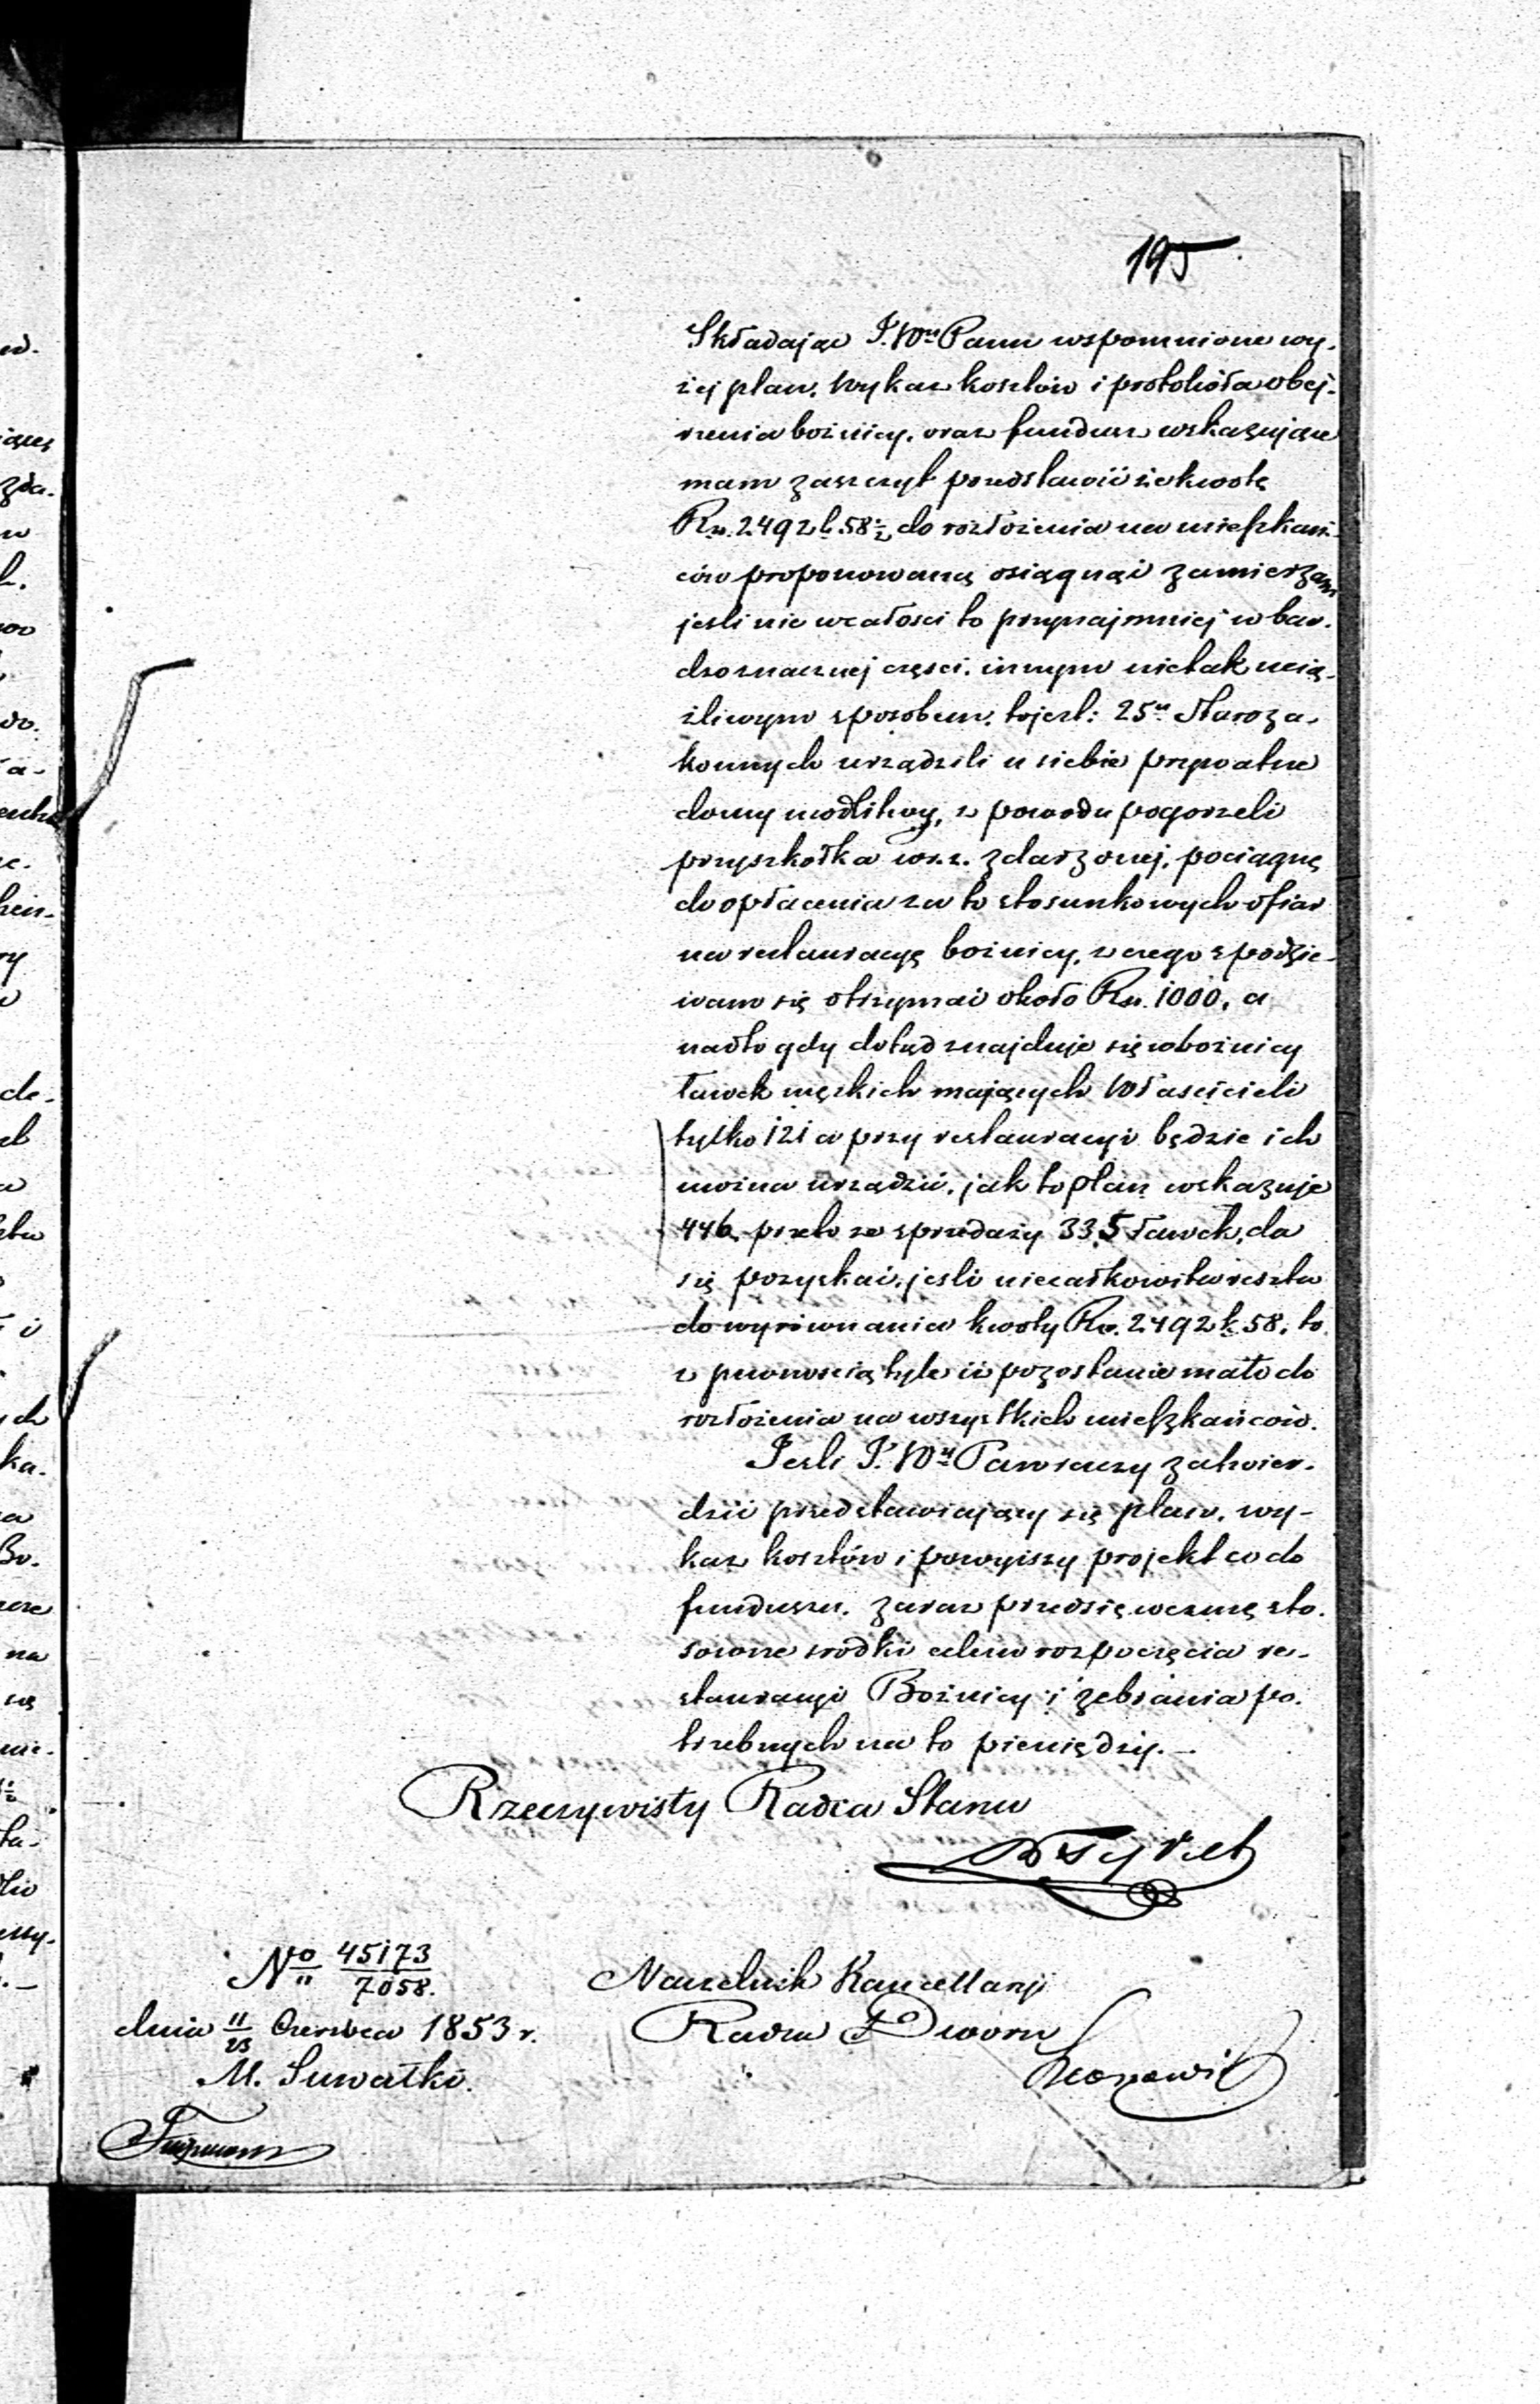 195
Składając J.Wmu Panu wspomnione wy-
żej plan. Wykaz kosztów i protokóła obej-
rzenia bożnicy. oraz fundusz wskazujące
mam zaszczyt przedstawić że kwotę
Rs. 2492 k. 58½ do rozłożenia na mieszkań-
ców proponowaną osiągnąć zamierzam
jeśli nie wcałości to przynajmniej w bar-
dzo znacznej części. innym nietak ucią-
żliwym sposobem. tojest: 25u Staroza-
konnych urządzili u siebie prywatne
domy modlitwy, z powodu pogorzeli
przyszkołka w r.z. zdarzonej. pociągnę
do opłacenia za to stosunkowych ofiar
na restauracyę bożnicy, z czego spodzie-
wam się otrzymać około Rs. 1000. a
nadto gdy dotąd znajduje się w bożnicy
ławek męskich mających Właścicieli
tylko 121 a przy restauracyi będzie ich
można urządzić. jak to plan wskazuje
446. przeto ze sprzedaży 335 ławek, da
się pozyskać. jeśli niecałkowita reszta
do wyrównania kwoty Rs. 2492 k. 58. to
z pewnością tyle iż pozostanie mało do
rozłożenia na wszystkich mieszkańców.
Jeśli J.W. Pan raczy zatwier-
dzić przedstawiający się plan. wy-
kaz kosztów i powyższy projekt co do
funduszu. zaraz przedsięwezmę sto-
sowne srodki celem rozpoczęcia re-
stauracyi Bożnicy i zebrania po-
trzebnych na to pieniędzy. —
Rzeczywisty Radca Stanu
No 45173
7058.
Naczelnik Kancellaryi
dnia 11/23 Czerwca 1853 r.
Radca Dworu
M. Suwałki.